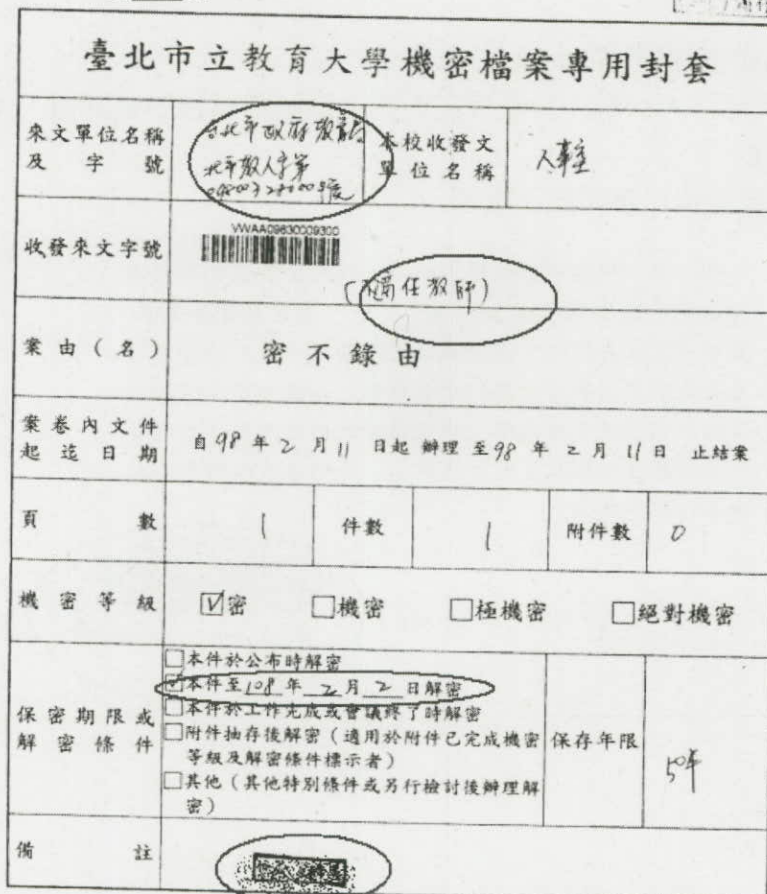 臺北市立教育大學機密檔案專用封套
來文單位名稱
及字號
台北市政府教育局
北市教人字第
本校收發文
單位名稱
人事室
收發來文字號
VVAA09830009300
(不適任教師)
案由(名)
密不錄由
案卷內文件
起迄日期
自98年2月11日起辦理至98年2月11日止結案
頁數
1
件數
1
附件數
0
機密等級
☑密 □機密 □極機密 □絕對機密
保密期限或
解密條件
□本件於公布時解密
☑本件至108年2月2日解密
□本件於工作完成或會議終了時解密
□附件抽存後解密(適用於附件已完成機密
等級及解密條件標示者)
□其他(其他特別條件或另行檢討後辦理解
密)
保存年限
50年
備註